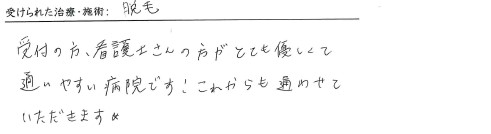 受けられた治療・施術: 脱毛
受付の方、看護士さんの方がとても優しくて
通いやすい病院です!これからも通わせて
いただきます